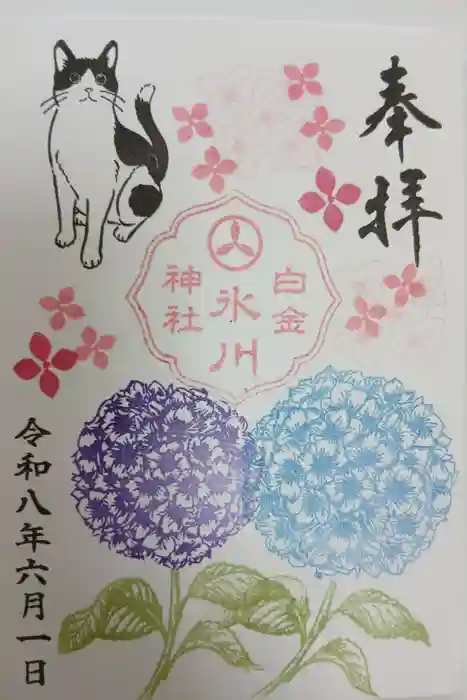 奉拝
白金
氷川
神社
令和八年六月一日